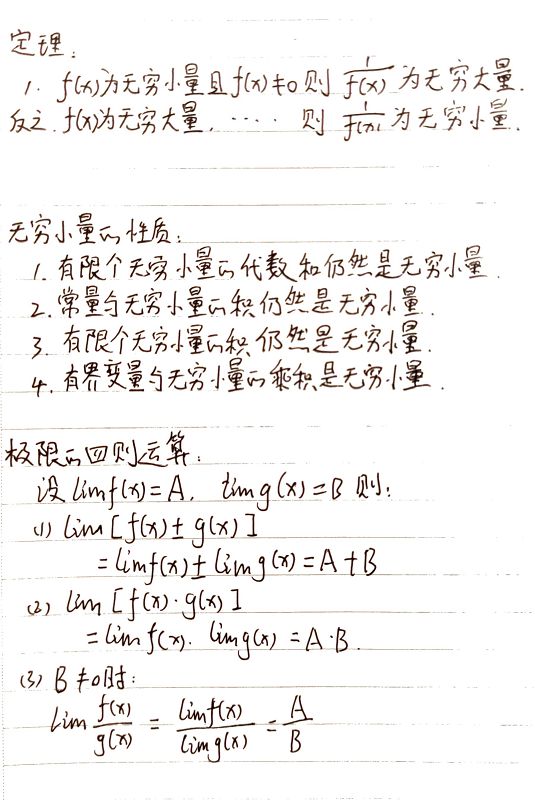 定理:
1. f(x)为无穷小量且f(x)≠0则 1/f(x) 为无穷大量.
反之.f(x)为无穷大量. ····. 则 1/f(x) 为无穷小量.
无穷小量的性质:
1. 有限个无穷小量的代数和仍然是无穷小量.
2. 常量与无穷小量的积仍然是无穷小量.
3. 有限个无穷小量的积仍然是无穷小量.
4. 有界变量与无穷小量的乘积是无穷小量.
极限的四则运算:
设 limf(x)=A. limg(x)=B 则:
(1) lim[f(x)±g(x)]
=limf(x)±limg(x)=A+B
(2) lim[f(x)·g(x)]
=limf(x). limg(x)=A·B.
(3) B≠0时:
lim f(x)/g(x) = limf(x)/limg(x) = A/B